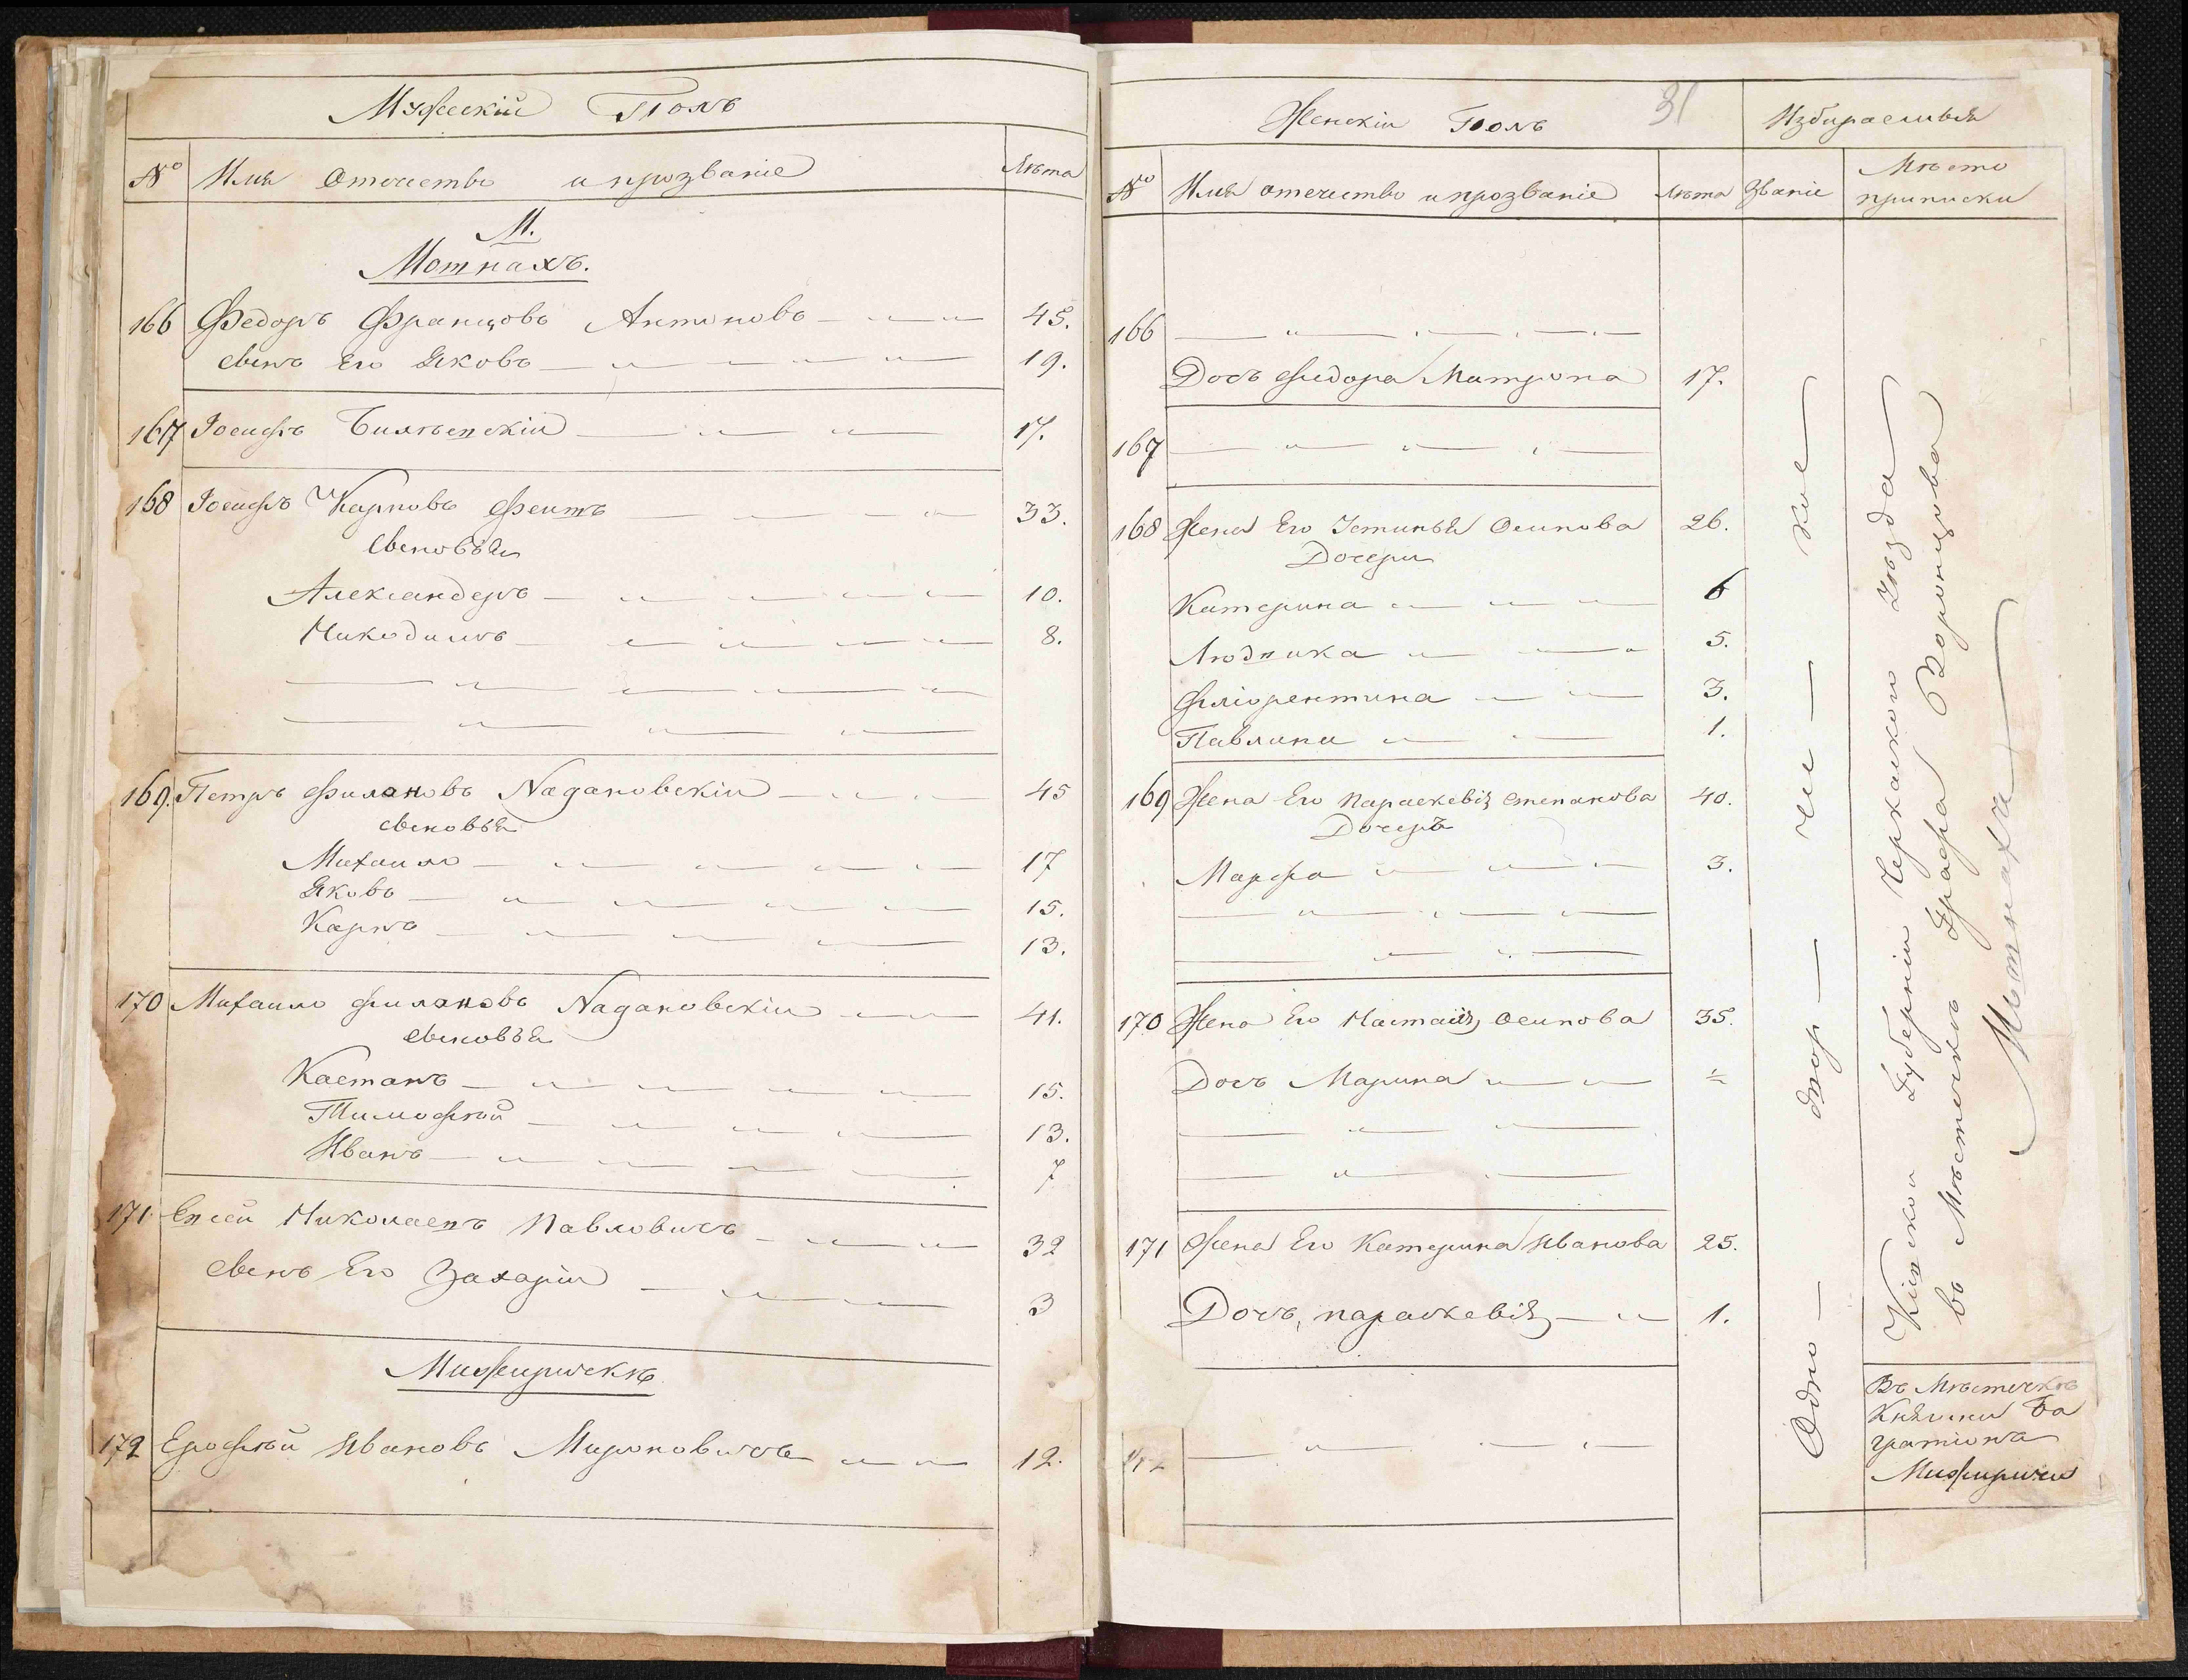 Мужескій Полъ
№ Имя Отечество и прозваніе Лѣта
М.
Мотнахъ.
166 Федоръ Францовъ Антоновъ 45.
сынъ Его Яковъ 19.
167 Іосифъ Билѣвскій 17.
168 Іосифъ Карповъ Фентъ 33.
сыновья
Александеръ 10.
Никодимъ 8.
169. Петръ Филановъ Надановскій 45
сыновья
Михаило 17
Яковъ 15.
Карпъ 13.
170 Михаило Филановъ Надановскій 41.
сыновья
Каетанъ 15.
Тимофѣй 13.
Иванъ 7
171 Николаевъ Павловичъ 32
сынъ Его Захарій 3
Мижиричкѣ
172 Ерофѣй Ивановъ Мироновичъ 12.
Женскій Полъ 31 Избираемыя
№ Имя отечество и прозваніе Лѣта Званіе Мѣсто
приписки
166
Дочь Федора Матрона 17.
167
168 Жена Его Устинья Осипова 26.
Дочери
Катерина 6
Людвика 5.
Фліорентина 3.
Павлина 1.
169 Жена Его Параскевія Степанова 40.
Дочерь
Марфа 3.
170 Жена Его Настасія Осипова 35.
Дочь Марина ½
171 Жена Его Катерина Иванова 25.
Дочь, параскевія 1.
172
Одно — двор — чес — кое
Кіевской Губерніи Черкаского Уѣзда
въ Мѣстечкѣ Графа Воронцова
Мотнахи
Въ Мѣстечкѣ
Княгини Ба
гратіона
Мижиричи